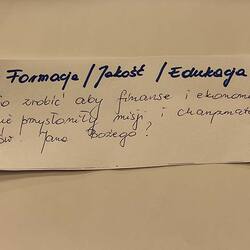 Formacja / Jakość / Edukacja
zrobić aby finanse i ekonomi
przysłoniły misji i charyzmatu
Jana Bożego?